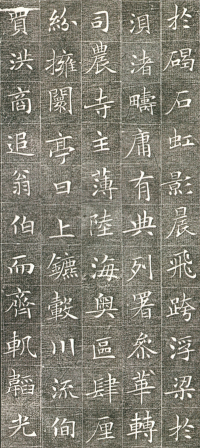 於碣石虹影晨飛跨浮梁於
湨渚疇庸有典列署叅華轉
司農寺主薄陸海輿區肆厘
紛擁闤亭日上鑣轂川流佪
貿洪商追翁伯而齊軌韜光